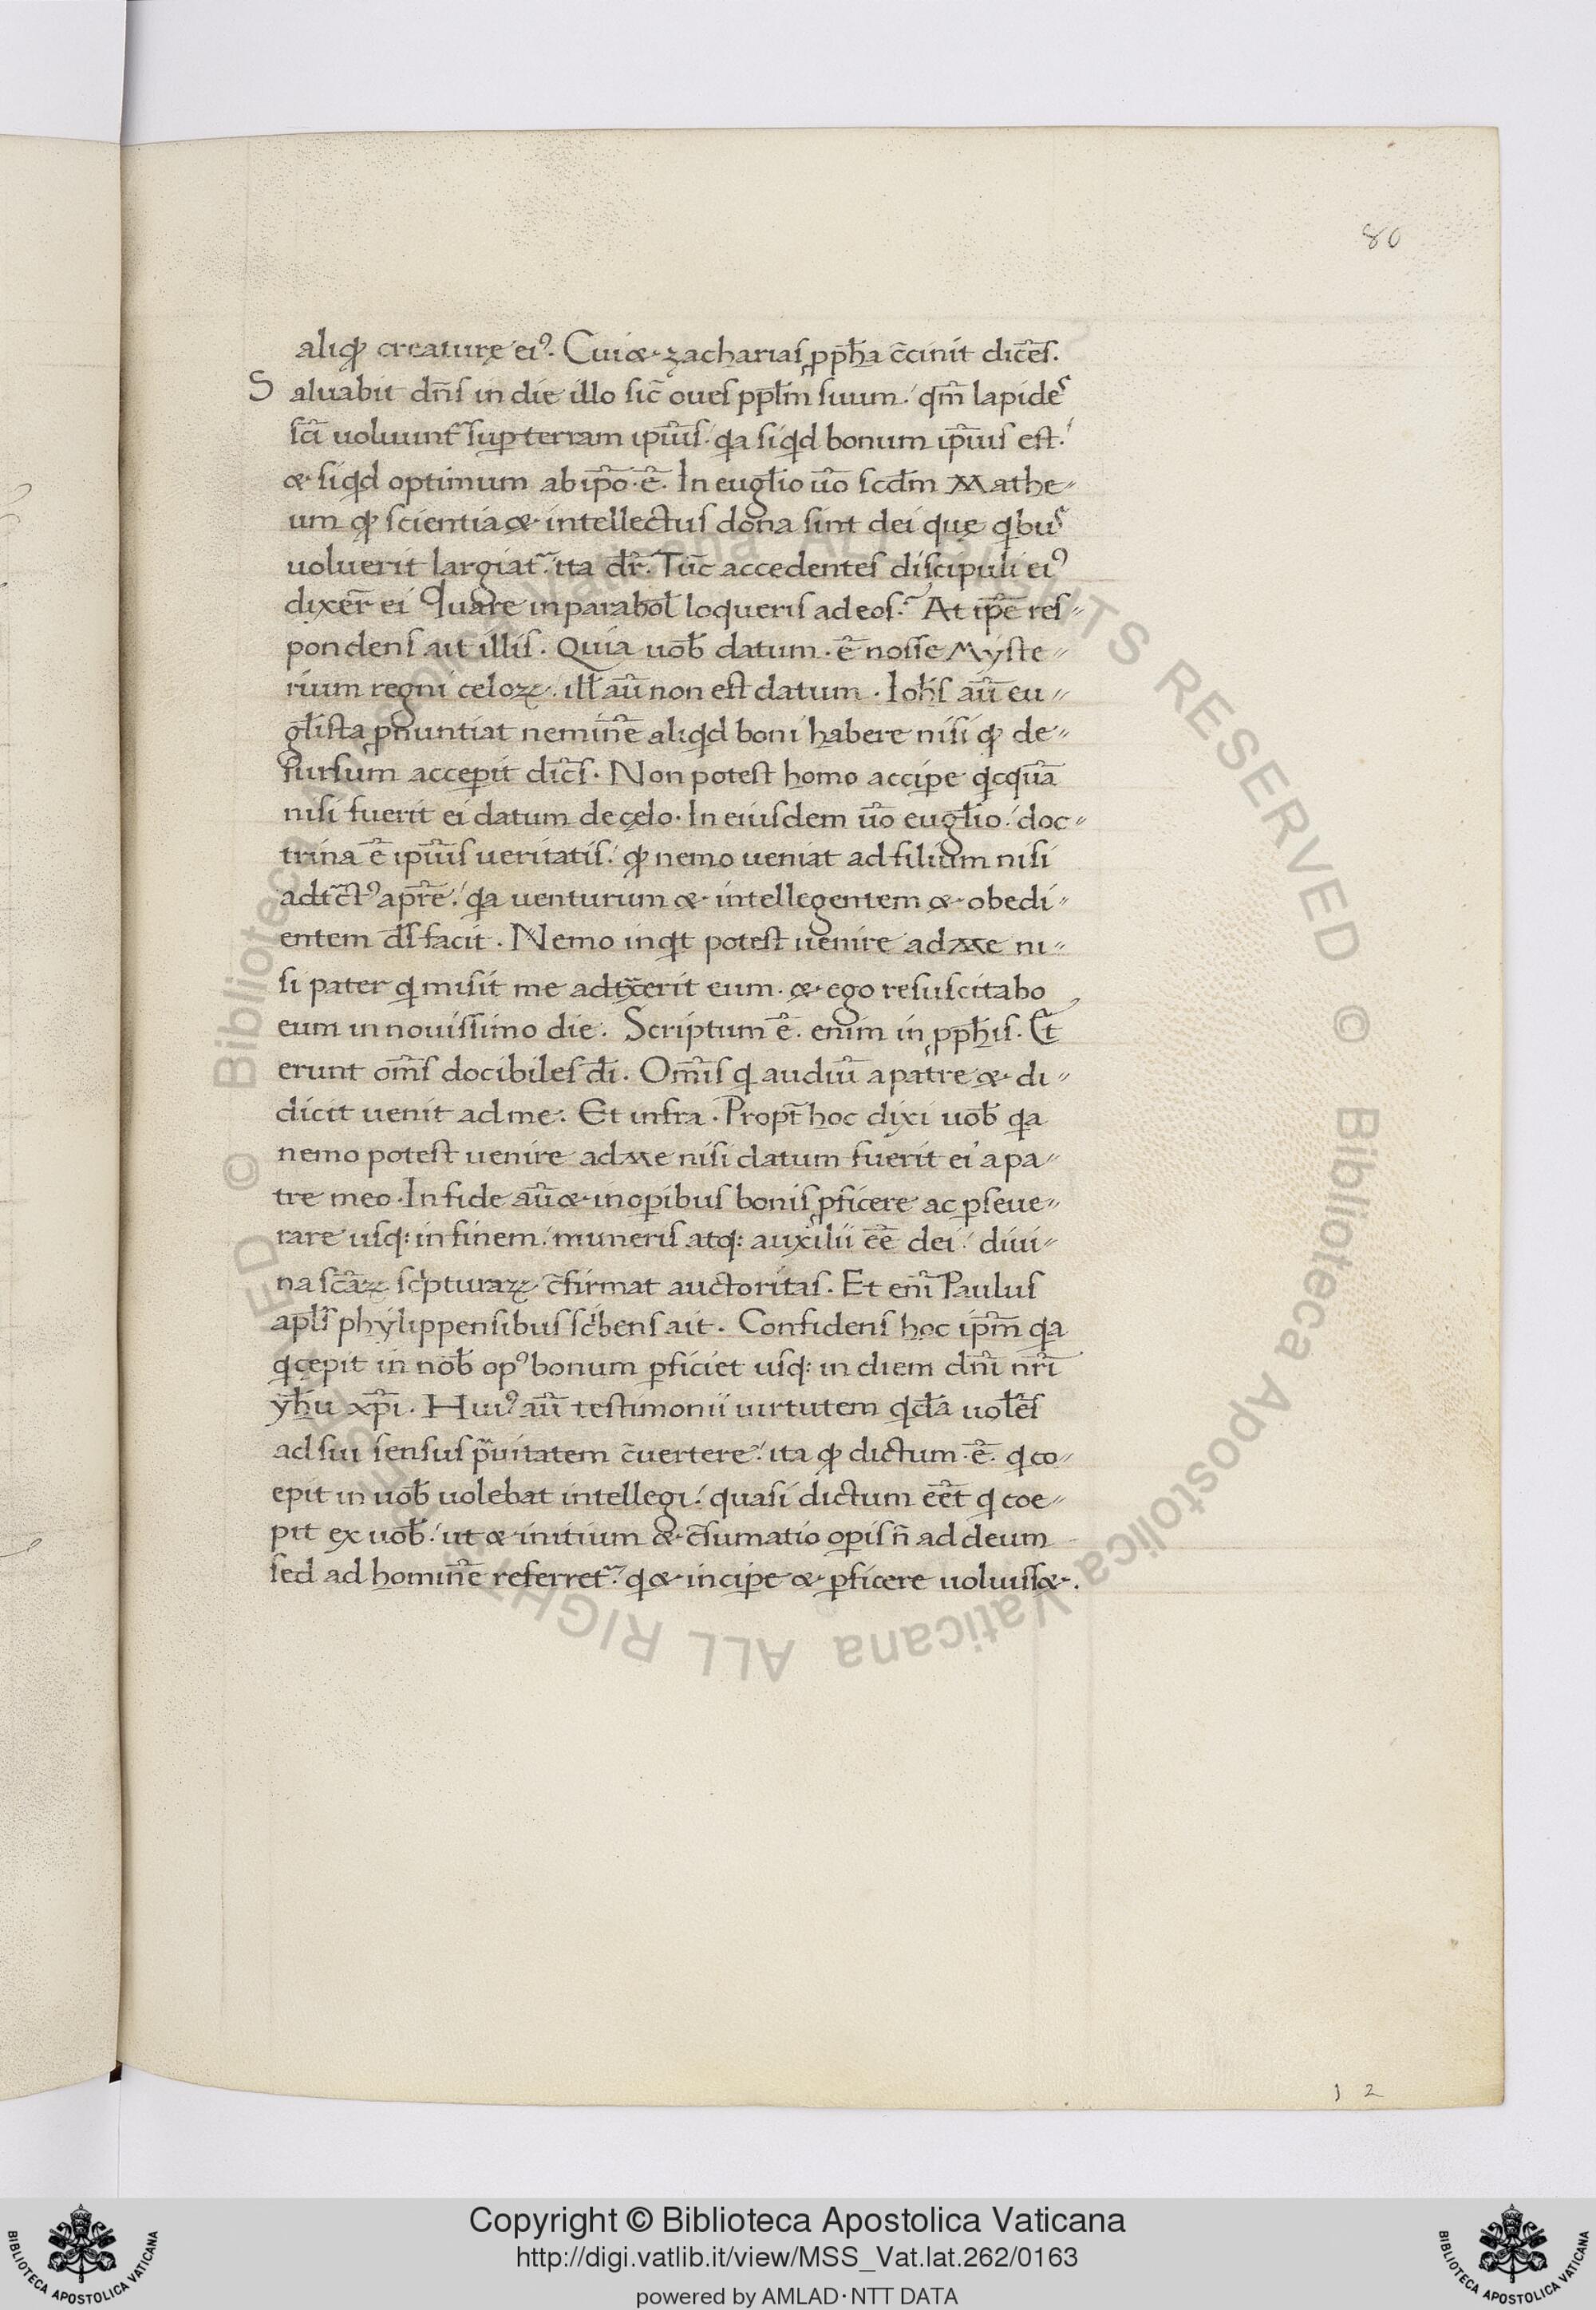 80
aliqͩ creaturę eiꝰ. Cui & zacharias ꝓph̄a c̄cinit dicēs.
Saluabit dn̄s in die illo sic̄ oues ppl̄m suum. qm̄ lapides
sc̄i uoluunt᷑ suꝑ terram ipīus. qa siqd bonum ipīus est.
& siqd optimum ab ipō. ē. In eugl̄io ūo scdm̄ Mathe〃
um qͩ scientia & intellectus dona sint dei quę qbus
uoluerit largiat᷑. ita dr̄. Tūc accedentes discipuli eiꝰ
dixer̄ ei Quare in parabol̄ loqueris ad eos. At ipē res〃
pondens ait illis. Quia uob̄ datum. ē nosse Myste〃
rium regni celoꝝ. ill̄ aū non est datum. Ioh̄s aū eu〃
gl̄ista ꝓnuntiat neminē aliqd boni habere nisi qͩ de〃
sursum accepit dic̄s. Non potest homo acciꝑe qcquā
nisi fuerit ei datum de cęlo. In eiusdem ūo eugl̄io. doc〃
trina ē ipīus ueritatis. qͩ nemo ueniat ad filium nisi
adtc̄tꝰ a pr̄e. qa uenturum & intellegentem & obedi〃
entem ds̄ facit. Nemo inqt potest uenire ad Me ni〃
si pater q misit me adtx̄erit eum. & ego resuscitabo
eum in nouissimo die. Scriptum ē. enim in ꝓph̄is. Et
erunt om̄s docibiles dī. Om̄is q audiū a patre & di〃
dicit uenit ad me. Et infra. Propt̄ hoc dixi uob̄ qa
nemo potest uenire ad Me nisi datum fuerit ei a pa〃
tre meo. In fide aū & in oꝑibus bonis ꝓficere ac ꝑseue〃
rare usq: in finem. muneris atq: auxilii eē dei. diui〃
na sc̄aꝝ scͥpturaꝝ c̄firmat auctoritas. Et enī Paulus
apl̄s phylippensibus scͥbens ait. Confidens hoc ipm̄ qa
q cępit in nob̄ opꝰ bonum ꝑficiet usq: in diem dn̄i nr̄i
yh̄u xp̄i. Huiꝰ aū testimonii uirtutem qdā uolēs
ad sui sensus pͣuitatem c̄uertere. ita qͩ dictum. ē. q co〃
epit in uob̄ uolebat intellegi. quasi dictum eēt q coe〃
pit ex uob̄. ut & initium & c̄sumatio oꝑis n̄ ad deum
sed ad hominē referret᷑. q & inciꝑe & ꝑficere uoluiss&.
1 2
Copyright © Biblioteca Apostolica Vaticana
http://digi.vatlib.it/view/MSS_Vat.lat.262/0163
powered by AMLAD·NTT DATA